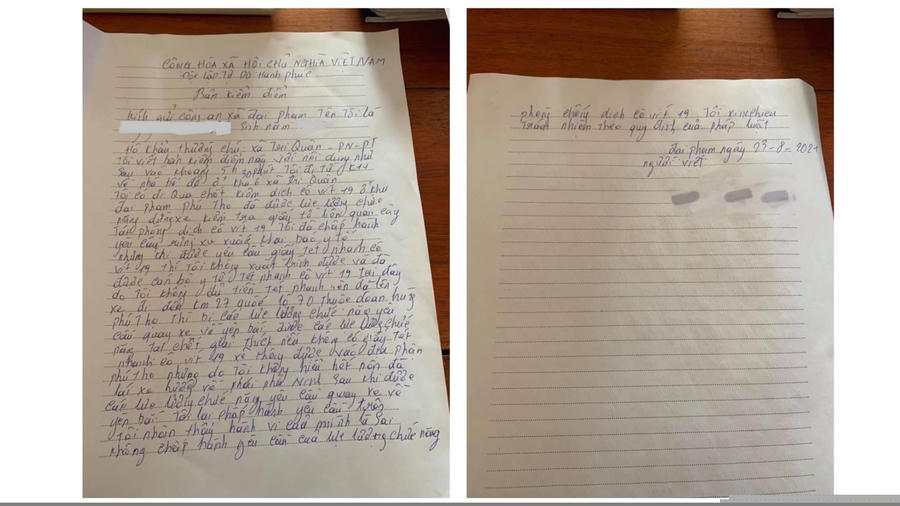 CÔNG HÒA XÃ HỘI CHỦ NGHĨA VIỆT NAM
Độc lập Tự DO Hành phúc
Bản kiểm điểm
Kính gửi công an xã đại phạm Tên Tôi là
Sinh năm
Hộ khẩu Thường chú xã Trị Quận - PN-PT
Tôi viết bản kiểm điểm này với nội dung như
sau vào khoảng 5h30 phút Tôi đi Từ K14
về nhà bố đẻ ở khu 6 xã Trị Quận
Tôi có đi Qua chốt kiểm dịch cô vít 19 ở khu
đại phạm phú Thọ đã được lực lượng chức
năng dừng xe kiểm tra giấy tờ liên quan đến
phòng dịch cô vít 19 Tôi đã chấp hành
yêu cầu xuống xe xuống khai báo y tế
nhưng khi được yêu cầu giấy Tét nhanh cô
vít 19 thì Tôi không xuất trình được và đã
được cán bộ y tế Tét nhanh cô vít 19 tại đây
do Tôi không đủ tiền Tét nhanh nên đã lên
xe đi đến km 27 quốc lộ 70 Thuộc đoan hùng
phú Thọ Thì bị các lực lượng chức năng yêu
cầu quay xe về yên bái được các lực lượng chức
năng Tại chốt giải thích nếu không có giấy Tét
nhanh cô vít 19 xe không được vào địa phận
phú Thọ nhưng do Tôi không hiểu hết nên đã
lái xe hướng về phía phù Ninh sau khi được
các lực lượng chức năng yêu cầu quay xe về
yên bái Tôi lại chấp hành yêu cầu
Tôi nhận thấy hành vi của mình là sai
không chấp hành yêu cầu của lực lượng chức năng
phòng chống dịch cô vít 19 Tôi xin chịu
Trách nhiệm theo quy định của pháp luật
đại phạm ngày 23-8-2021
người viết